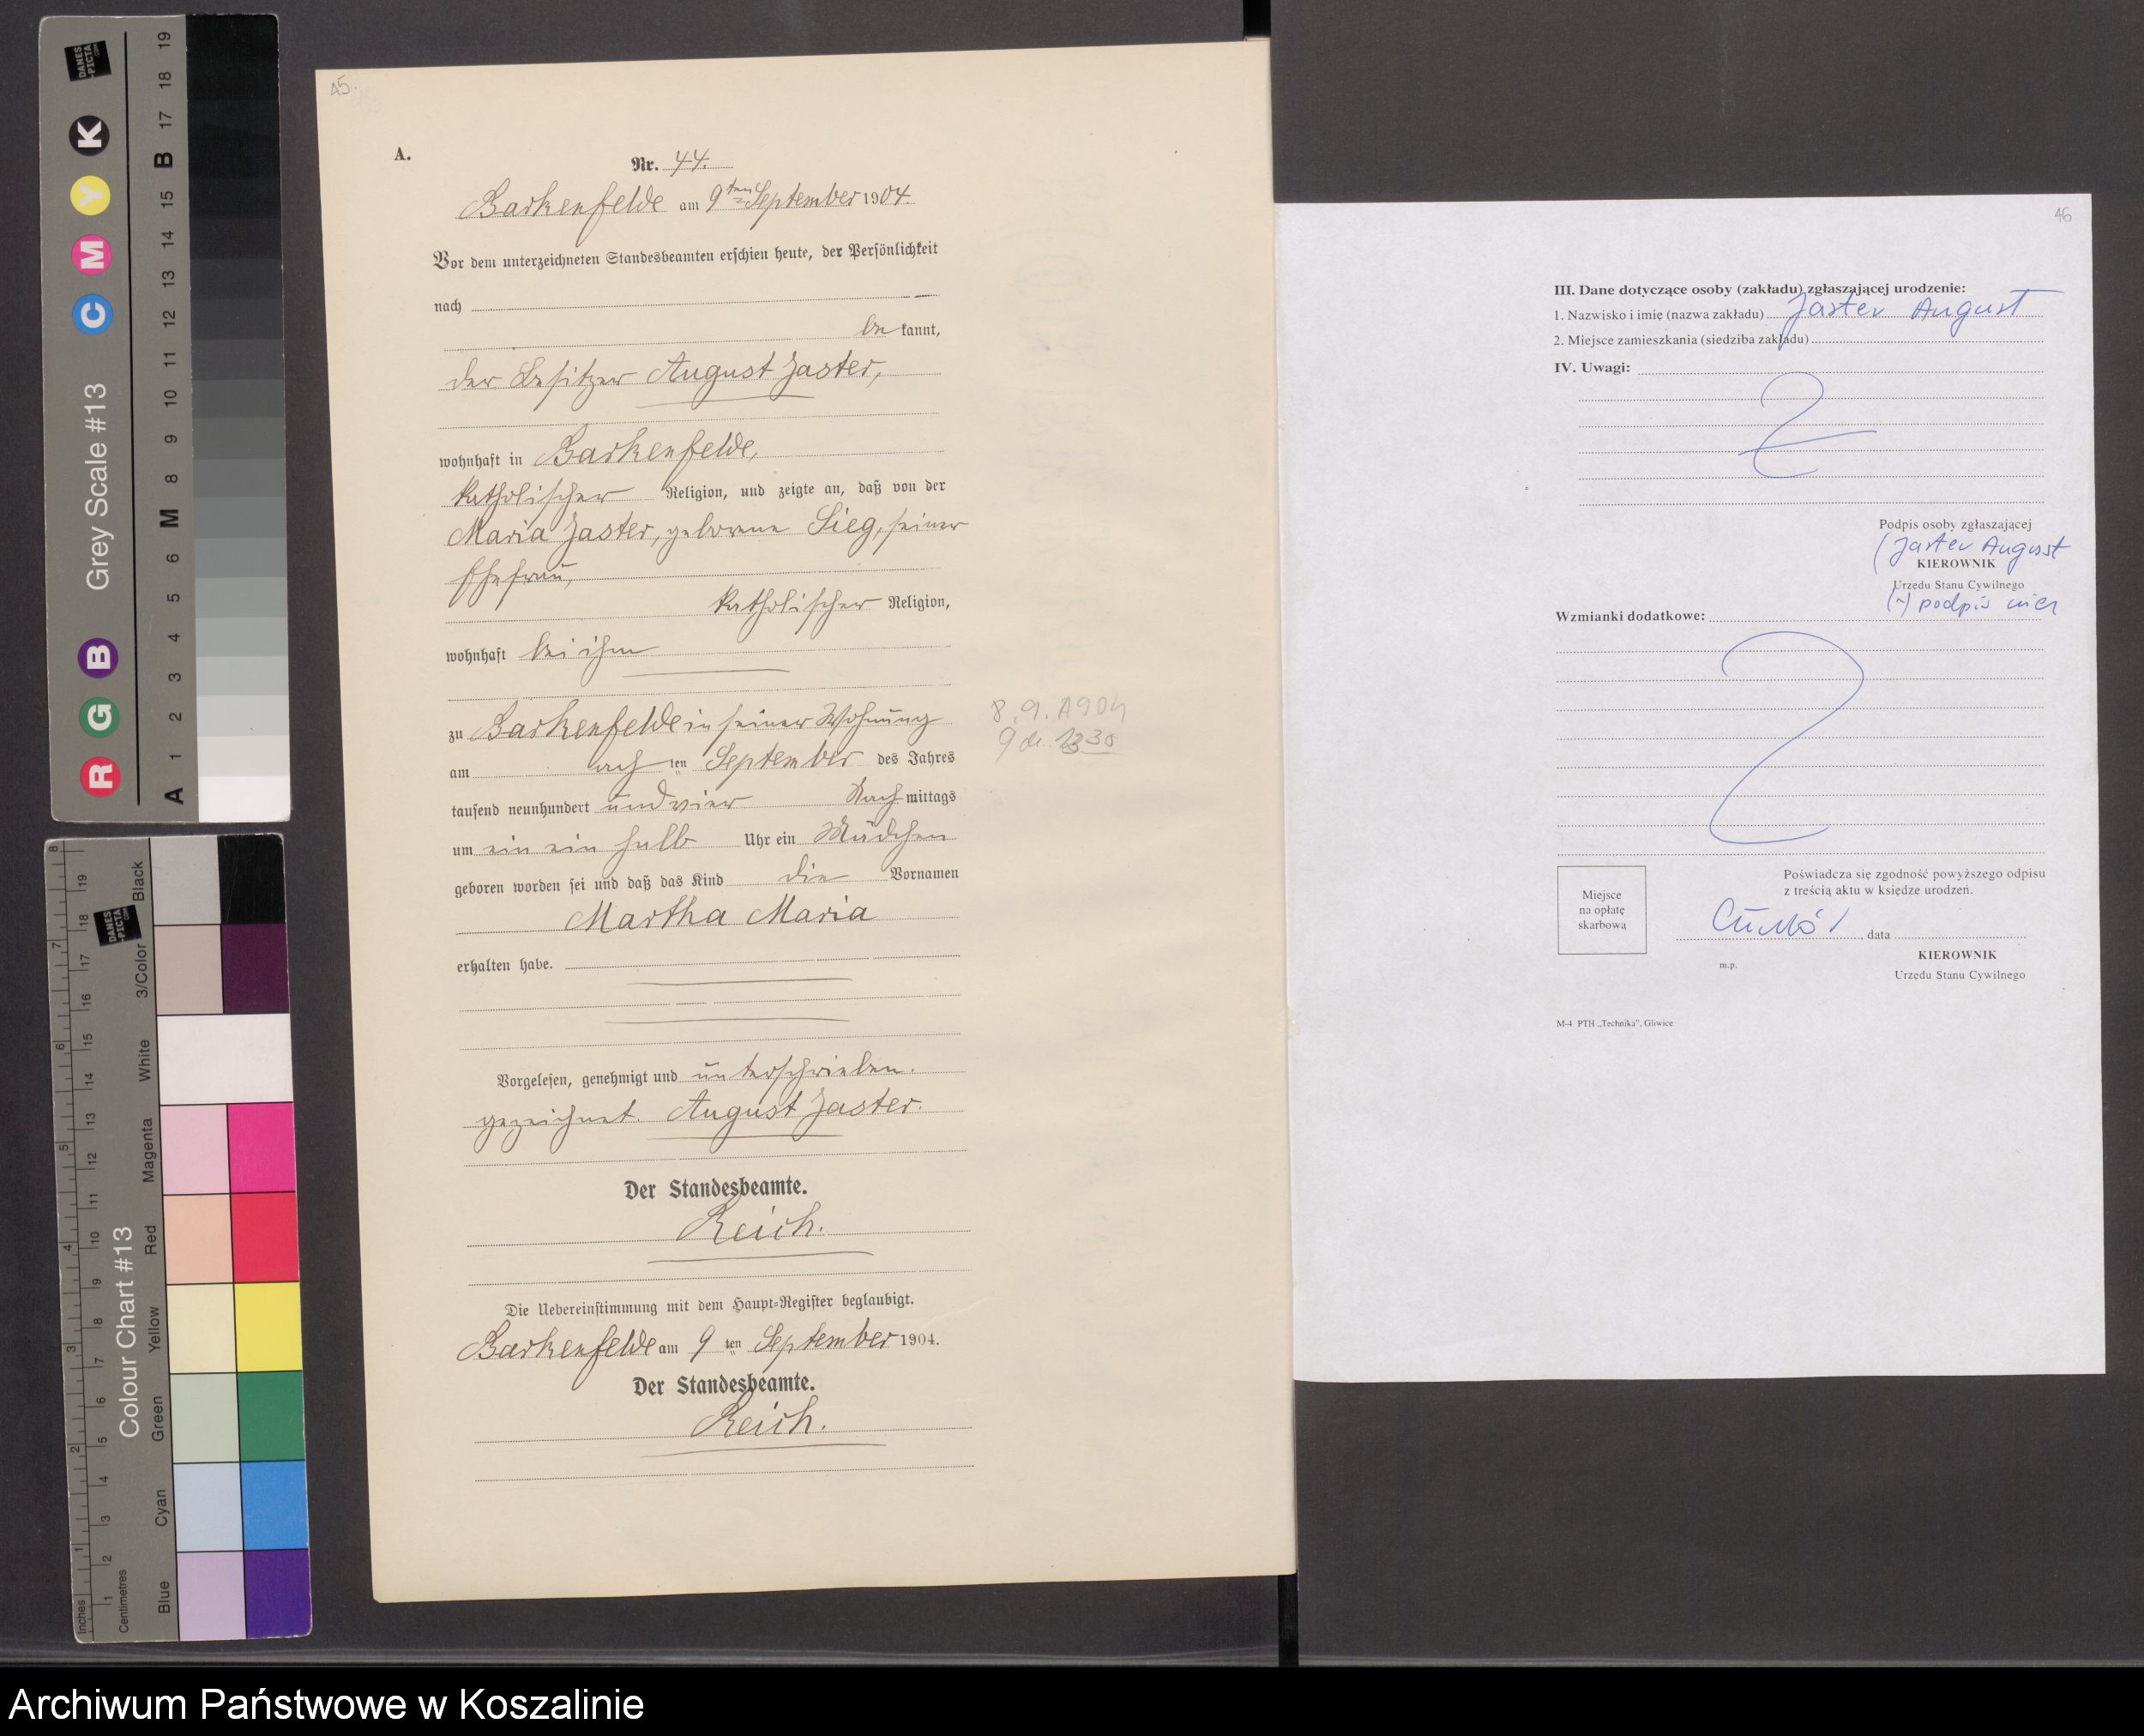 45.
A.
Nr. 44.
Barkenfelde am 9ten September 1904.
Vor dem unterzeichneten Standesbeamten erschien heute, der Persönlichkeit
nach
be kannt,
der Besitzer August Jaster,
wohnhaft in Barkenfelde,
katholischer Religion, und zeigte an, daß von der
Maria Jaster, geborene Sieg, seiner
Ehefrau,
katholischer Religion,
wohnhaft bei ihm
zu Barkenfelde in seiner Wohnung
am acht ten September des Jahres
tausend neunhundert und vier Nach mittags
um ein ein halb Uhr ein Mädchen
geboren worden sei und daß das Kind die Vornamen
Martha Maria
erhalten habe.
8.9.1904
Vorgelesen, genehmigt und unterschrieben.
gezeichnet. August Jaster.
Der Standesbeamte.
Reich.
Die Uebereinstimmung mit dem Haupt-Register beglaubigt.
Barkenfelde am 9 ten September 1904.
Der Standesbeamte.
Reich.
46
III. Dane dotyczące osoby (zakładu) zgłaszającej urodzenie:
1. Nazwisko i imię (nazwa zakładu) Jaster August
2. Miejsce zamieszkania (siedziba zakładu)
IV. Uwagi:
Podpis osoby zgłaszającej
(Jaster August
KIEROWNIK
Urzędu Stanu Cywilnego
(-) podpis
Wzmianki dodatkowe:
Miejsce
na opłatę
skarbową
Poświadcza się zgodność powyższego odpisu
z treścią aktu w księdze urodzeń.
, data
m.p.
KIEROWNIK
Urzędu Stanu Cywilnego
M-4 PTH „Technika", Gliwice
DANES
-PICTA
.COM
Grey Scale #13
R G B C M Y K
A 1 2 3 4 5 6 M 8 9 10 11 12 13 14 15 B 17 18 19
DANES
-PICTA
.COM
Colour Chart #13
Blue Cyan Green Yellow Red Magenta White 3/Color Black
Inches 1 2 3 4 5 6 7 8
Centimetres 1 2 3 4 5 6 7 8 9 10 11 12 13 14 15 16 17 18 19
Archiwum Państwowe w Koszalinie